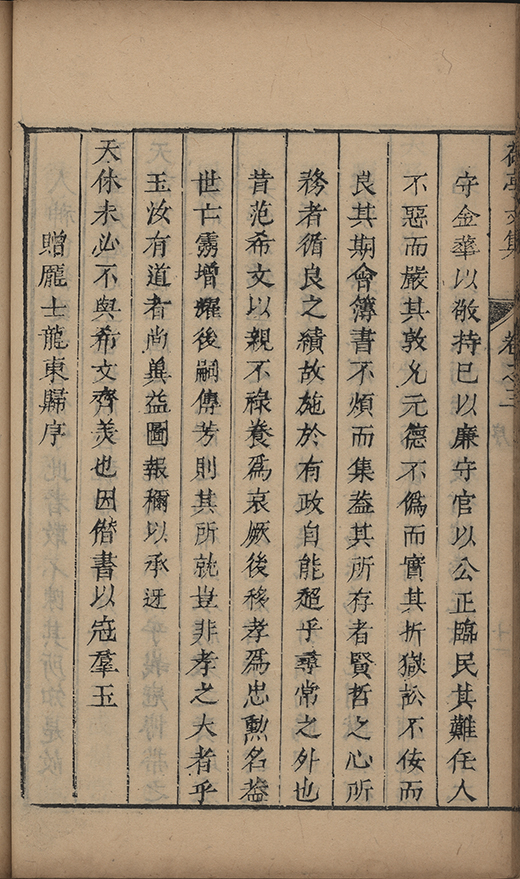 荷亭文集 卷之三
守金華以敬持已以廉守官以公正臨民其難任人
不惡而嚴其敦允元德不偽而實其折獄訟不佞而
良其期會簿書不煩而集葢其所存者賢哲之心所
務者循良之績故施於有政自能超乎尋常之外也
昔范希文以親不祿養爲哀厥後移孝爲忠勲名葢
世亡靈增耀後嗣傳芳則其所就豈非孝之大者乎
玉汝有道者尚冀益圖報稱以承迓
天休未必不與希文齊美也因僭書以冠羣玉
贈龐士龍東歸序